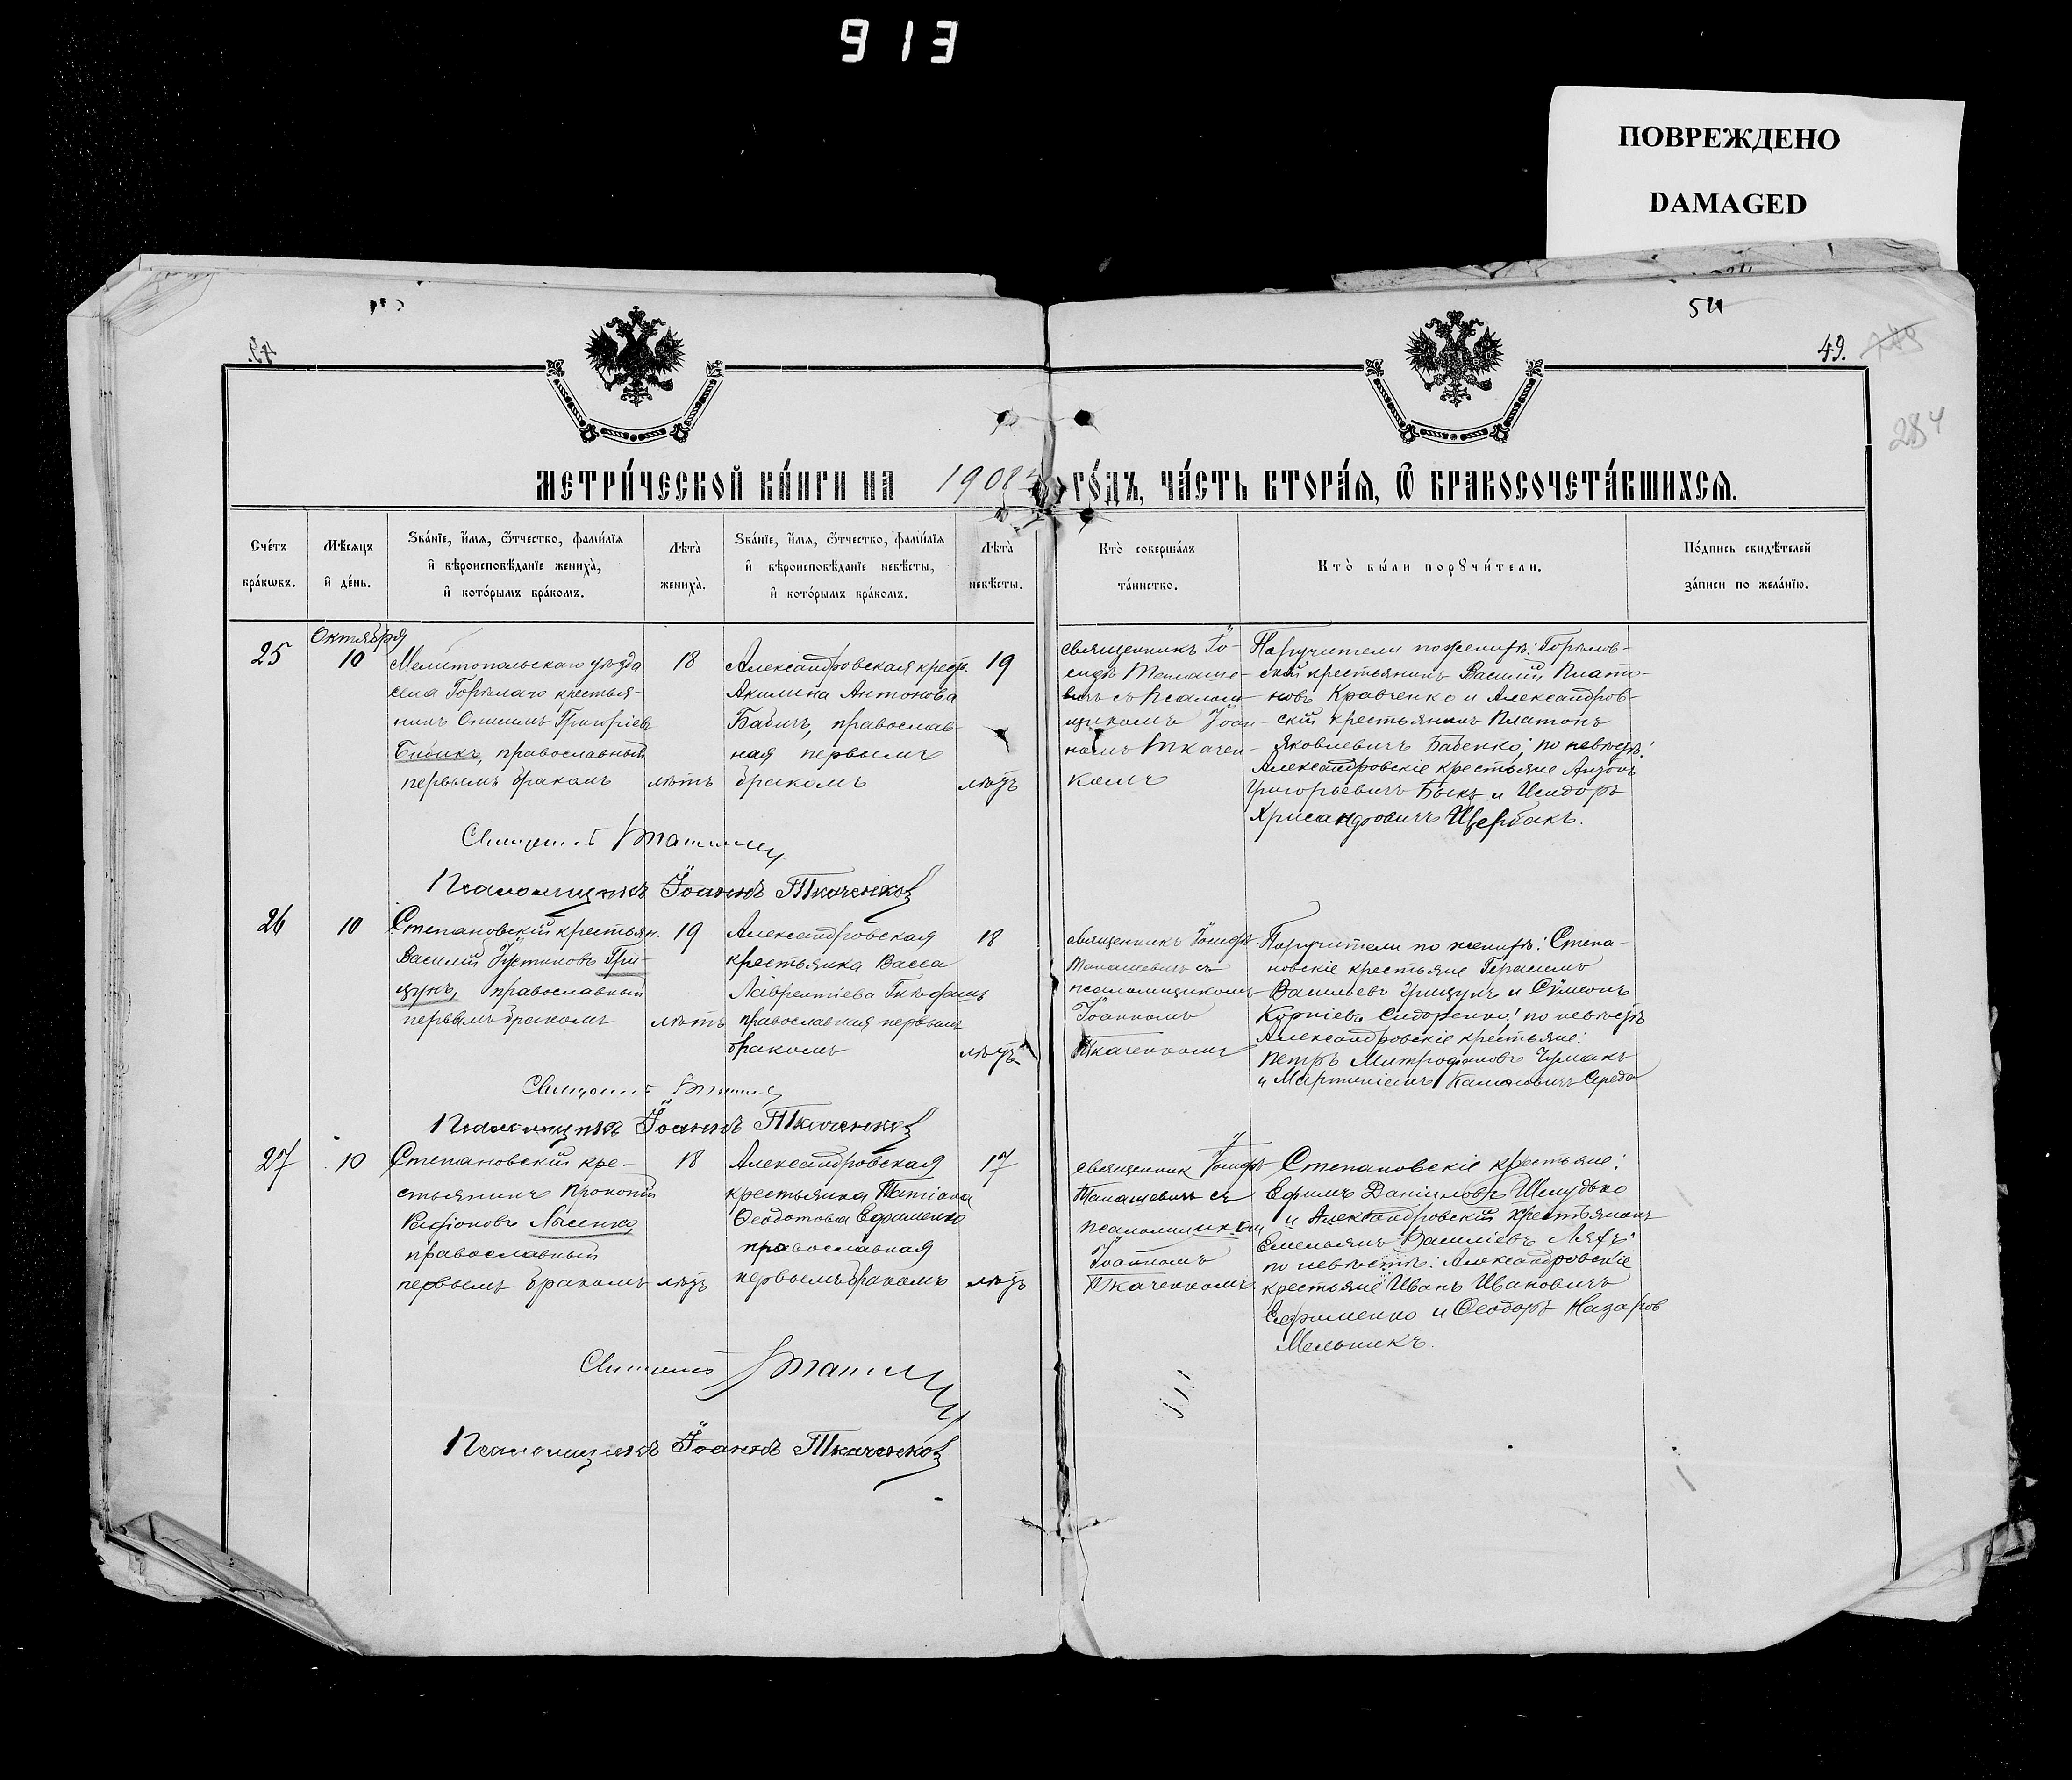 913
ПОВРЕЖДЕНО
DAMAGED
54
49.
284
метри́ческой кни́ги на 1908 го́дъ, ча́сть втора́я, ѿ бракосочета́вшихся.
Сче́тъ бра́кѡвъ.
Мѣ́сяцъ и҆ де́нь.
Ѕва́нїе, и҆́мя, ѻ҆́тчество, фами́лїя
и҆ вѣроисповѣ́данїе жениха̀,
и҆ кото́рымъ бра́комъ.
Лѣта̀ жениха̀.
Ѕва́нїе, и҆́мя, ѻ҆́тчество, фами́лїя
и҆ вѣроисповѣ́данїе невѣ́сты,
и҆ кото́рымъ бра́комъ.
Лѣта̀ невѣ́сты.
Кто̀ соверша́лъ та́инство.
Кто̀ бы́ли порꙋчи́тели.
По́дпись свидѣ́телей за́писи по жела́нїю.
Октября
25
10
Мелитопольскаго уѣзда
села Горѣлаго крестья-
нинъ Онисимъ Григоріевъ
Бибикъ, православный
первымъ бракомъ
18
лѣтъ
Александровская крест.
Акилина Антонова
Бабичъ, православ-
ная первымъ
бракомъ
19
лѣтъ
священникъ Іо-
сифъ
вичъ съ псалом-
щикомъ Іоан-
номъ Ткачен-
комъ
Поручители по женихѣ: Горѣлов-
скій крестьянинъ Василій Плато-
новъ Кравченко и Александров-
скій крестьянинъ Платонъ
Яковлевичъ Бабенко; по невѣстѣ:
Александровскіе крестьяне Антонъ
Григорьевичъ Быкъ и Исидоръ
Хрисанфовичъ Щербакъ.
Псаломщикъ Іоаннъ Ткаченко
26
10
Степановскій крестьян.
Василій Іустиновъ Гри-
щукъ, православный
первымъ бракомъ
19
лѣтъ
Александровская
крестьянка Васса
Лаврентіева
православная первымъ
бракомъ
18
лѣтъ
священникъ Іосифъ
Танашевичъ съ
псаломщикомъ
Іоанномъ
Ткаченкомъ
Поручители по женихѣ: Степа-
новскіе крестьяне Герасимъ
Васильевъ Грищукъ и Сѵмеонъ
Корніевъ Сидоренко; по невѣстѣ
Александровскіе крестьяне:
Петръ Митрофановъ Чумакъ
и Мартиніанъ Середа
Псаломщикъ Іоаннъ Ткаченко
27
10
Степановскій кре-
стьянинъ Прокопій
Родіоновъ Лысенко,
православный
первымъ бракомъ
18
лѣтъ
Александровская
крестьянка Татіана
Ѳеодотова Ефименко
православная
первымъ бракомъ
17
лѣтъ
священник Іосифъ
Танашевичъ съ
псаломщиком
Іоанномъ
Ткаченкомъ.
Степановскіе крестьяне:
Ефимъ Даніиловъ Шелудько
и Александровскій крестьянинъ
Емельянъ Василіевъ Ляхъ;
по невѣстѣ: Александровскіе
крестьяне Иванъ Ивановичъ
Ефименко и Ѳеодоръ Назаров
Мельникъ.
Псаломщикъ Іоаннъ Ткаченко